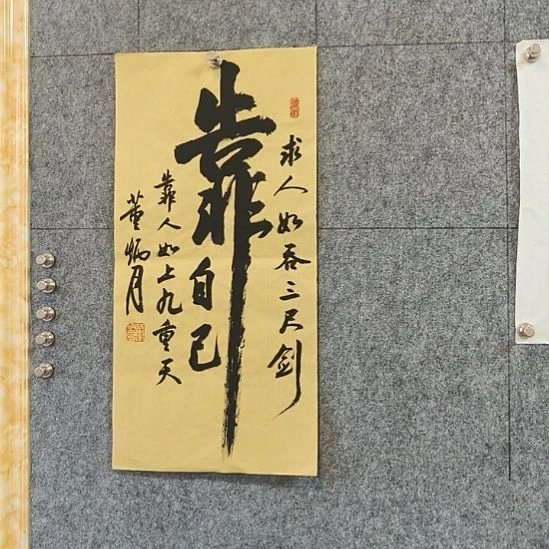 求人如吞三尺剑
靠自己
靠人如上九重天
董炳月